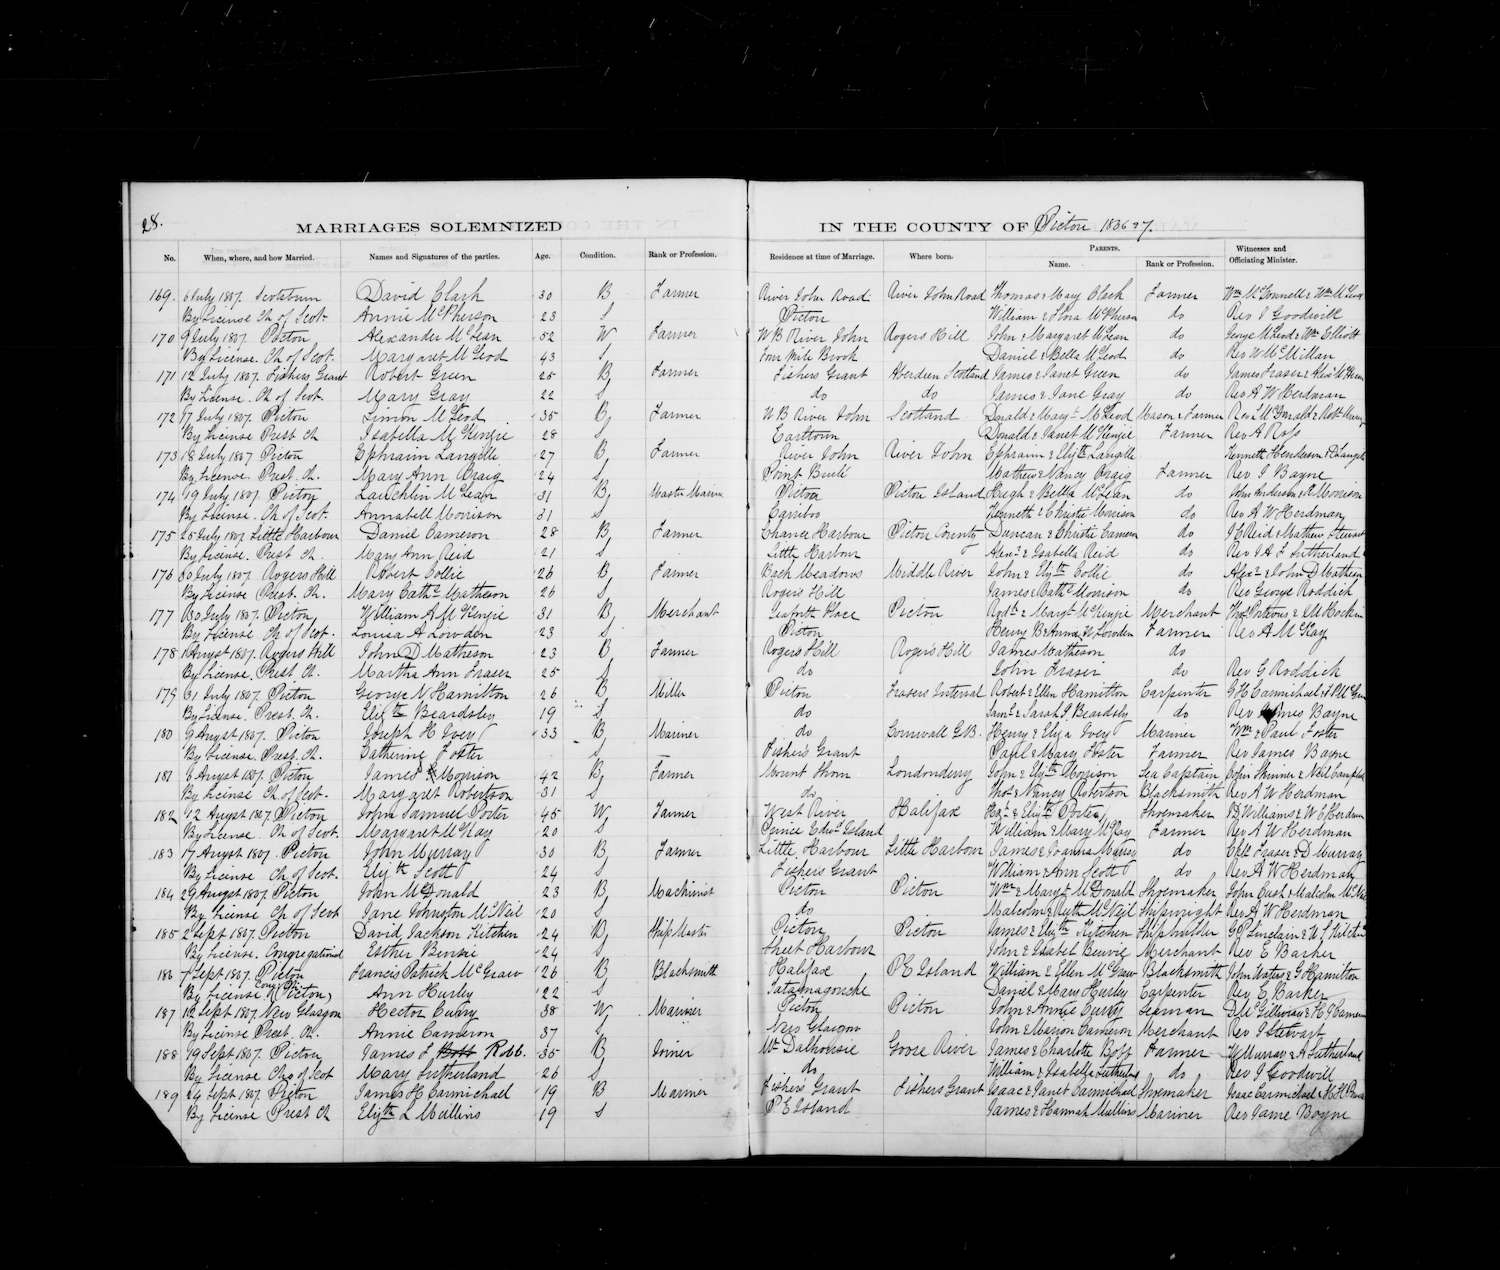 28.
MARRIAGES SOLEMNIZED IN THE COUNTY OF Pictou 1836 37.
No. When, where, and how Married. Names and Signatures of the parties. Age. Condition. Rank or Profession. Residence at time of Marriage. Where born. PARENTS. Name. Rank or Profession. Witnesses and Officiating Minister.
169. 6 July 1807. Scotsburn David Clark 30 B Farmer River John Road River John Road Thomas & Mary Clark Farmer
By License Ch of Scot. Annie McPherson 23 S Pictou William & Flora McPherson do Rev J Goodwill
170 9 July 1807. Pictou Alexander McLean 52 W Farmer W B River John Rogers Hill John & Margaret McLean do George McLeod & Wm Elliott
By License. Ch of Scot. Margaret McLeod 43 S Four Mile Brook Daniel & Bella McLeod do Rev W McMillan
171 12 July 1807. Fishers Grant Robert Green 25 B Farmer Fishers Grant Aberdeen Scotland James & Janet Green do James Fraser &
By License. Ch of Scot. Mary Gray 22 S do do James & Jane Gray do Rev A W Herdman
172 17 July 1807. Pictou Simon McLeod 35 B Farmer W B River John Scotland Donald & Mary McLeod Mason & Farmer
By License Prest Ch Isabella McKenzie 28 S Earltown Donald & Janet McKenzie Farmer Rev A Ross
173 18 July 1807 Pictou Ephraim Langille 27 B Farmer River John River John Ephraim & Elizth Langille Kenneth Henderson
By License. Prest. Ch. Mary Ann Craig 24 S Point Brulé Mathew & Nancy Craig Farmer Rev J Bayne
174 19 July 1807. Pictou Lauchlin McLean 31 B Master Mariner Pictou Pictou Island Hugh & Bella McLean do John Anderson & Morrison
By License. Ch of Scot. Annabell Morrison 31 S Cariboo Kenneth & Christie Morrison do Rev A W Herdman
175 25 July 1807. Little Harbour Daniel Cameron 28 B Farmer Chance Harbour Pictou County Duncan & Christie Cameron do J C Reid & Mathew Stewart
By License. Prest Ch. Mary Ann Reid 21 S Little Harbour Alexr & Isabella Reid do Rev J A F Sutherland
176 30 July 1807. Rogers Hill Robert Collie 26 B Farmer Back Meadows Middle River John & Elyth Collie do Alexr & John D Matheson
By License Prest. Ch. Mary Cathe Matheson 26 S Rogers Hill James & Cathe Morrison do Rev George Roddick
177 30 July 1807. Pictou William A McKenzie 31 B Merchant Seaforth Place Pictou Rodk & Margt McKenzie Merchant
By License Ch of Scot. Louisa A Lowden 23 S Pictou Henry B & Anna W Lowden Farmer Rev A McKay
178 1 Augst 1807. Rogers Hill John D Matheson 23 B Farmer Rogers Hill Rogers Hill James Matheson do
By License. Prest Ch. Martha Ann Fraser 25 S do John Fraser do Rev G Roddick
179 31 July 1807. Pictou George N Hamilton 26 B Miller Pictou Frasers Interval Robert & Ellen Hamilton Carpenter G H Carmichael &
By License. Prest. Ch. Elizth Beardsley 19 S do Saml & Sarah J Beardsley do Rev James Bayne
180 9 Augst 1807. Pictou Joseph H Ivey 33 B Mariner do Cornwall G.B. Henry & Eliza Ivey Mariner Wm & Paul Foster
By License. Prest. Ch. Catherine Foster S Fisher's Grant Paul & Mary Foster Farmer Rev James Bayne
181 6 Augst 1807. Pictou James Morrison 42 B Farmer Mount Thom Londonderry John & Elyth Morrison Sea Captain John Skinner & Neil Campbell
By License Ch of Scot. Margaret Robertson 31 S do Thos & Nancy Robertson Blacksmith Rev A W Herdman
182 12 Augst 1807 Pictou John Samuel Porter 45 W Farmer West River Halifax & Elizth Porter Shoemaker D. Williams & W E Herdman
By License. Ch of Scot. Margaret McKay 20 S Prince Edwd Island William & Mary McKay Farmer Rev A W Herdman
183 17 Augst 1807. Pictou John Murray 30 B Farmer Little Harbour Little Harbour James & Joanna Murray do Fraser & D Murray
By License Ch of Scot. Elyth Scott 24 S Fishers Grant William & Ann Scott do Rev A W Herdman
184 29 Augst 1807. Pictou John McDonald 23 B Machinist Pictou Pictou Wm & Maryt McDonald Shoemaker John Cash & Malcolm McNeil
By License Ch of Scot Jane Johnston McNeil 20 S do Malcolm & Ruth McNeil Shipwright Rev A W Herdman
185 2 Sept 1807. Pictou David Jackson Kitchen 24 B Ship Master Pictou Pictou James & Elyth Kitchen Shipbuilder G P Sinclair &
By License. Congregational Esther Binnie 24 S Sheet Harbour John & Isabel Merchant Rev E Barker
186 7 Sept 1807. Pictou Francis Patrick McGraw 26 B Blacksmith Halifax P E Island William & Ellen McGraw Blacksmith John Waters & G Hamilton
By License (Pictou) Ann Hurley 22 S Tatamagouche Daniel & Mary Hurley Carpenter Rev E Barker
187 12 Sept 1807. New Glasgow Hector Curry 38 W Mariner Pictou Pictou John & Annie Curry Seaman D McGillivray & H J Cameron
By License Prest. Ch. Annie Cameron 37 S New Glasgow John & Marion Cameron Merchant Rev J Stewart
188 19 Sept 1807. Pictou James F Robb. 35 B Joiner Mt Dalhousie Goose River James & Charlotte Robb Farmer W Murray & A Sutherland
By License Ch of Scot Mary Sutherland 26 S do William & Isabella Sutherland do Rev J Goodwill
189 24 Sept 1807. Pictou James H Carmichael 19 B Mariner Fishers Grant Fishers Grant Isaac & Janet Carmichael Shoemaker Isaac Carmichael &
By License Prest Ch Elizth L Mullins 19 S P E Island James & Hannah Mullins Mariner Rev Jame Bayne